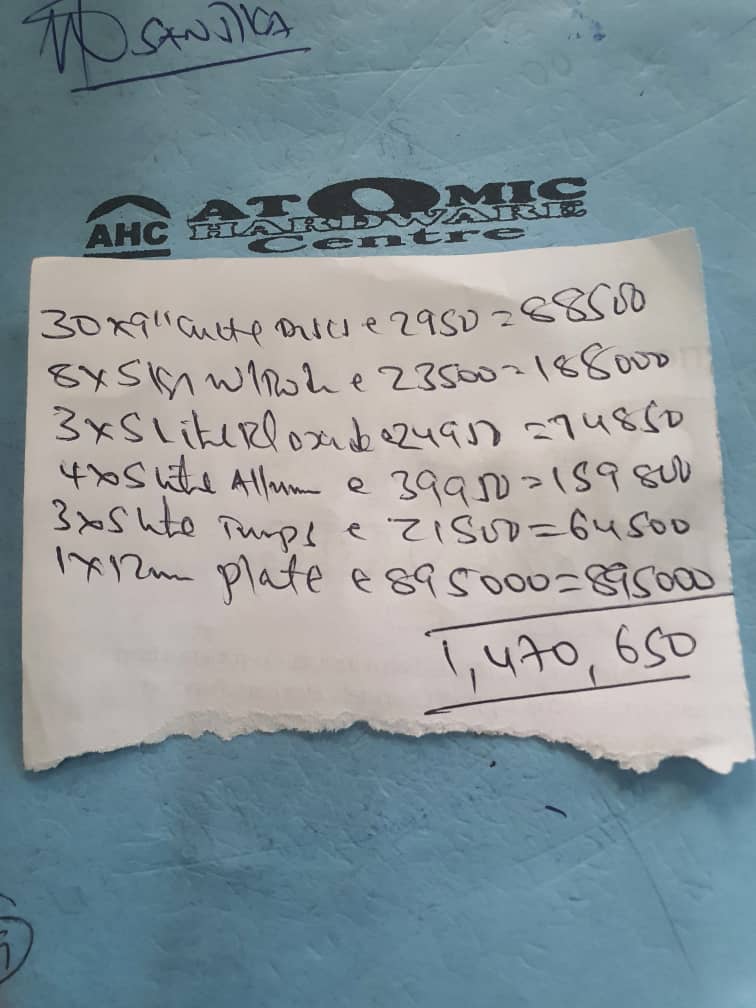 SANJIKA
AHC ATOMIC
HARDWARE
Centre
30x9" Cutte Discs @ 2950 = 88500
8x5kg W/Rod @ 23500 = 188000
3x5 Lite Rd oxide @ 24950 = 74850
4x5 lite Allum @ 39950 = 159800
3x5 lite Turps @ 21500 = 64500
1x12mm plate @ 895000 = 895000
1,470,650